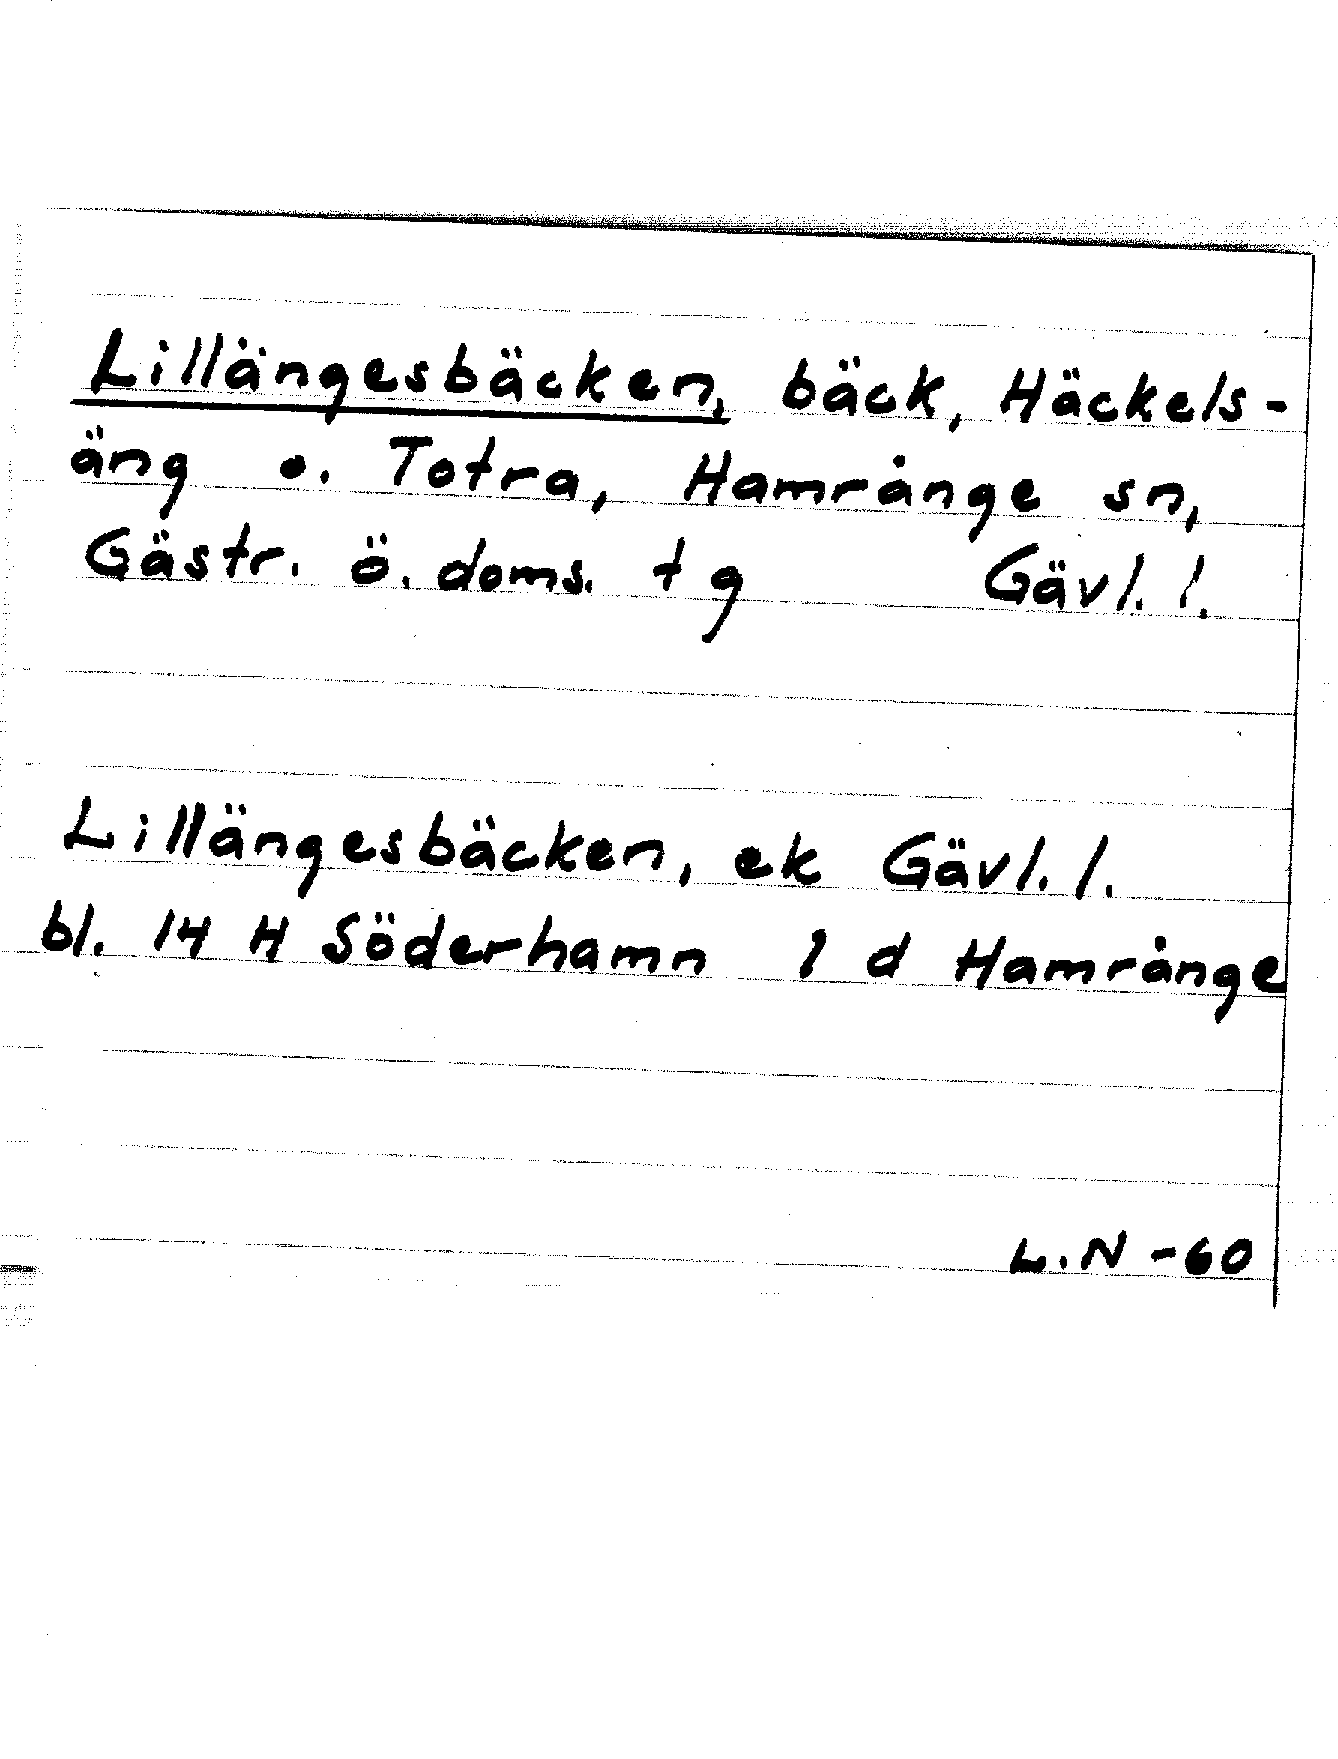 Lillängesbäcken, bäck, Häckels-
äng o. Totra, Hamrånge sn,
Gästr. ö. doms. tg Gävl. l.
Lillängesbäcken, ek Gävl. l.
bl. 14 H Söderhamn 1 d Hamrånge
L.N -60